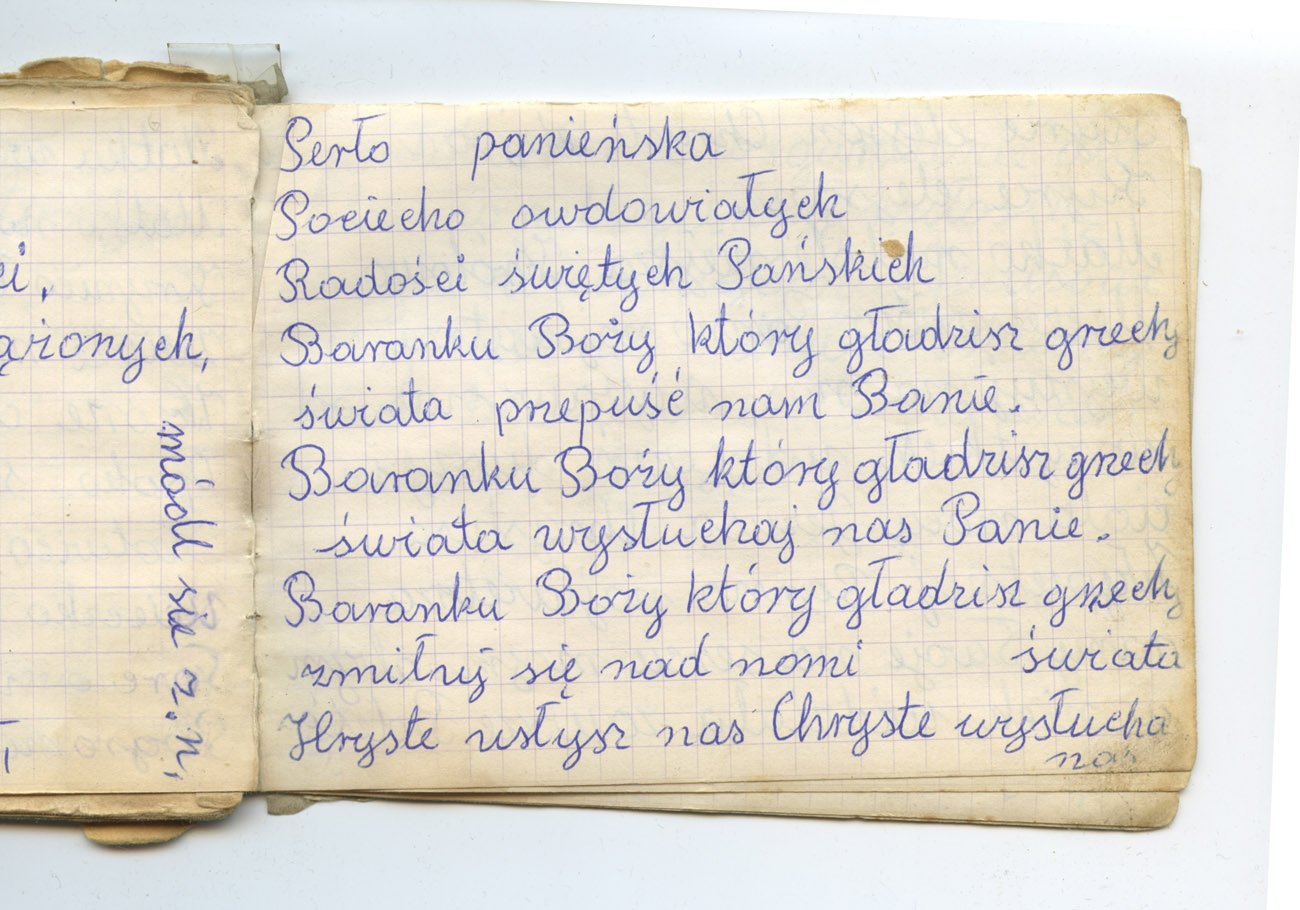 ei,
ążonych,
módl sie z. n,
Perło panieńska
Pociecho owdowiałych
Radości świętych Pańskich
Baranku Boży który gładzisz grzechy
świata przepuść nam Banie.
Baranku Boży który gładzisz grzech
świata wysłuchaj nas Panie.
Baranku Boży który gładzisz grzechy
zmiłuj się nad nomi świata
Hryste usłysz nas Chryste wysłucha
nas